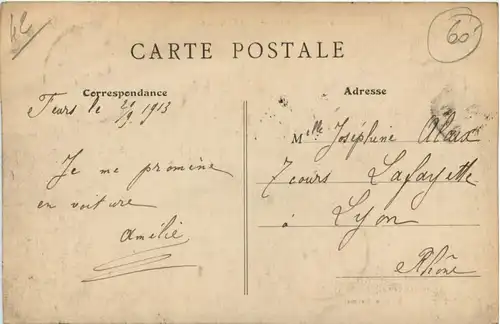 42
60
CARTE POSTALE
Correspondance
Feurs le 29/9 1913
Je me promène
en voiture
Amélie
Adresse
Mlle Joséphine
7 cours Lafayette
à Lyon
Rhône